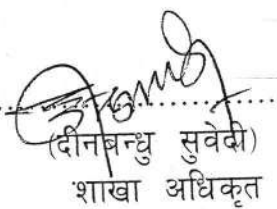 (दीनबन्धु सुवेदी)
शाखा अधिकृत